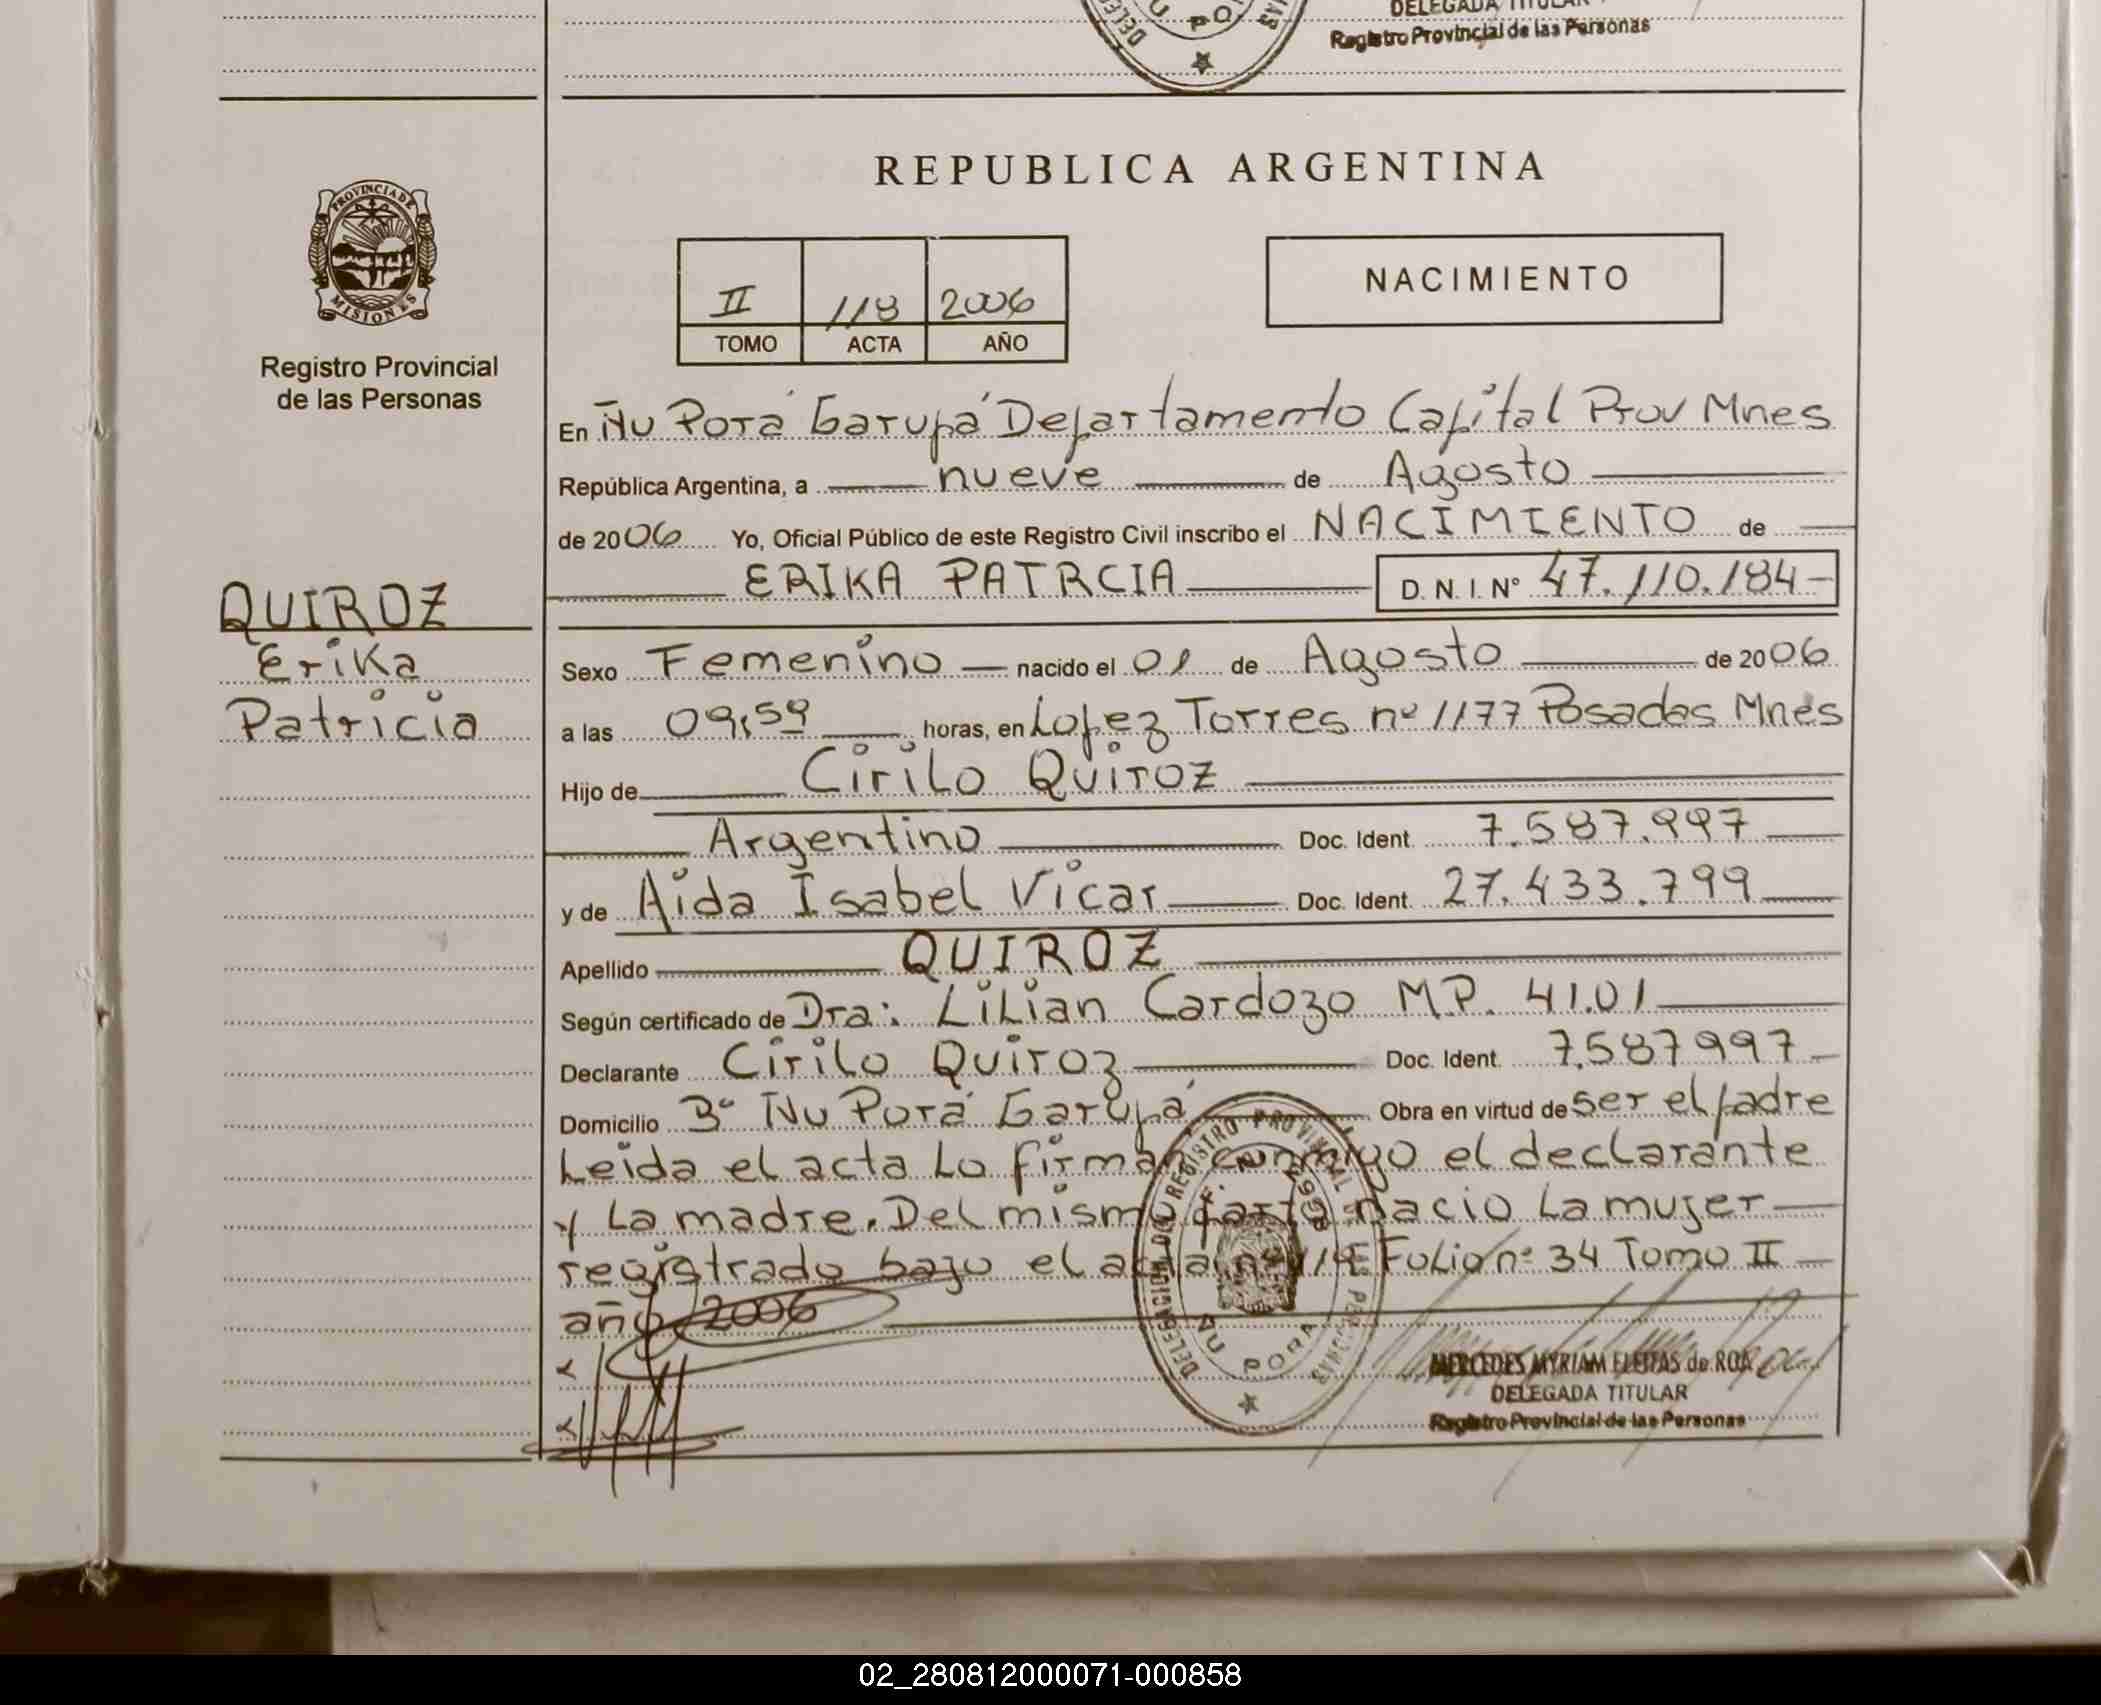 DELEGADA TITULAR
Registro Provincial de las Personas
PROVINCIA DE
MISIONES
Registro Provincial
de las Personas
REPUBLICA ARGENTINA
II 118 2006
TOMO ACTA AÑO
NACIMIENTO
En Ñu Porá Garupá Departamento Capital Prov Mnes
República Argentina, a nueve de Agosto
de 2006 Yo, Oficial Público de este Registro Civil inscribo el NACIMIENTO de
ERIKA PATRCIA D. N. I. Nº 47.110.184
QUIROZ
Erika
Patricia
Sexo Femenino nacido el 01 de Agosto de 2006
a las 09,59 horas, en Lopez Torres nº 1177 Posadas Mnes
Hijo de Cirilo Quiroz
Argentino Doc. Ident. 7.587.997
y de Aida Isabel Vicar Doc. Ident. 27.433.799
Apellido QUIROZ
Según certificado de Dra: Lilian Cardozo MP. 41.01
Declarante Cirilo Quiroz Doc. Ident. 7.587997
Domicilio Bº Ñu Porá Garupá Obra en virtud de ser el padre
Leida el acta Lo firman conmigo el declarante
y La madre. Del mismo parto nacio La mujer
registrado bajo el acta nº Folio nº 34 Tomo II
año 2006
DELEGACION DEL REGISTRO PROVINCIAL DE LAS PERSONAS
ÑU PORA
MERCEDES MYRIAM FLEITAS de ROA
DELEGADA TITULAR
Registro Provincial de las Personas
02_280812000071-000858